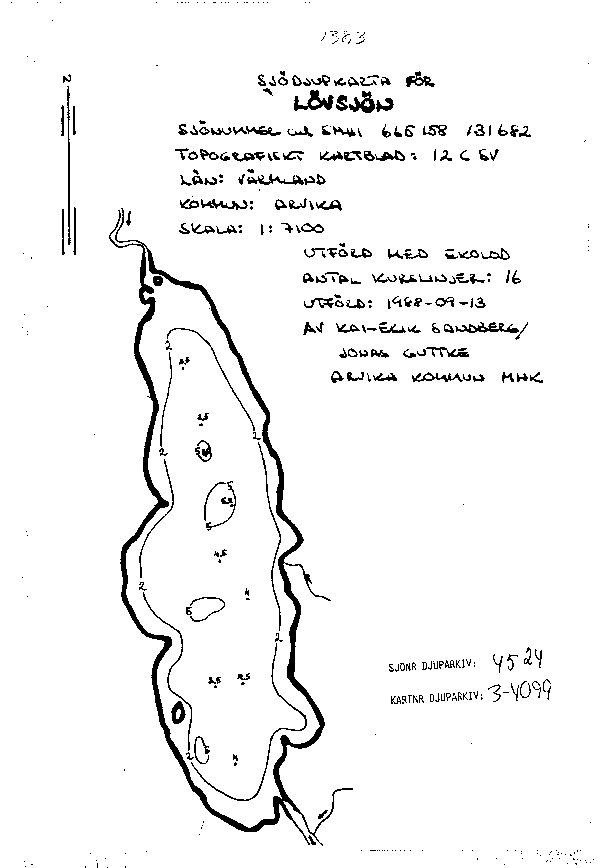 1383
N
SJÖDJUPKARTA FÖR
LÖVSJÖN
SJÖNUMMER enl SMHI 665158 131682
TOPOGRAFISKT KARTBLAD: 12 C SV
LÄN: VÄRMLAND
KOMMUN: ARVIKA
SKALA: 1:7100
UTFÖRD MED EKOLOD
ANTAL KURSLINJER: 16
UTFÖRD: 1988-09-13
AV KAI-ERIK SANDBERG/
JONAS GUTTKE
ARVIKA KOMMUN MHK
2
2,5
3,5
2
2
5
5
4,5
4
2
5
2
SJÖNR DJUPARKIV: 4524
KARTNR DJUPARKIV: 3-4099
2
4